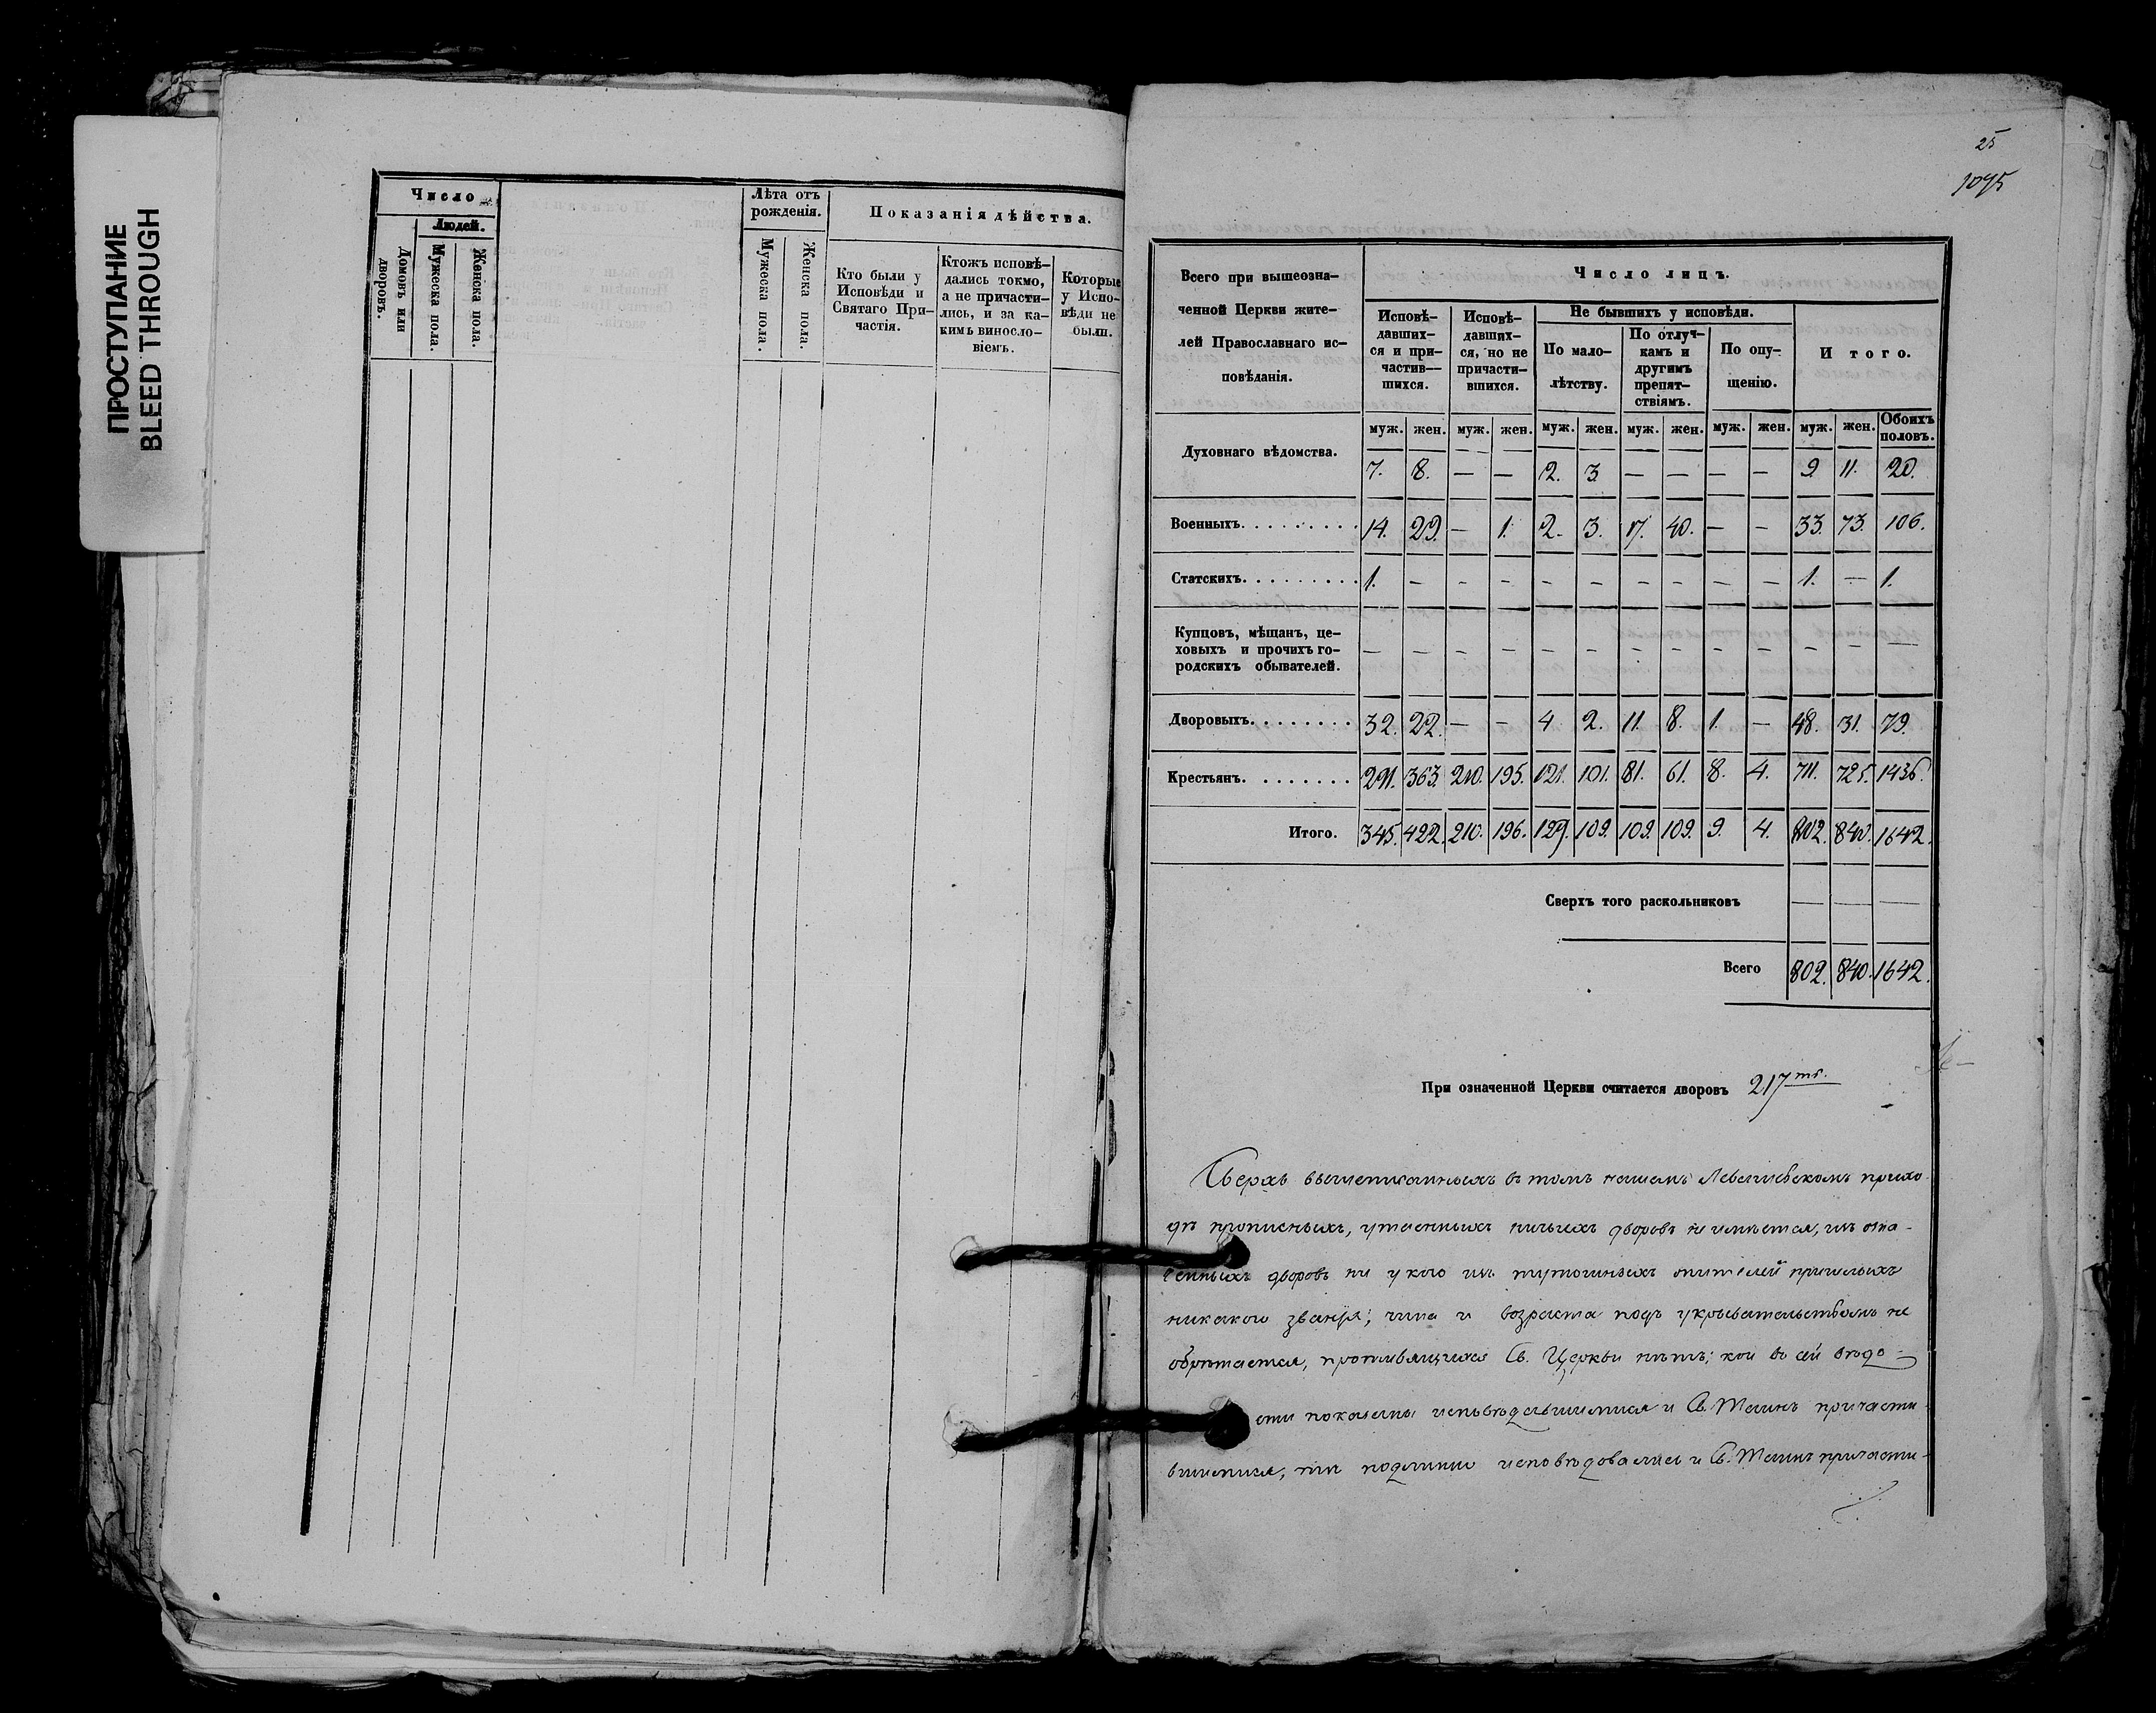 ПРОСТУПАНИЕ
BLEED THROUGH
Число
Людей.
Домовъ или дворовъ.
Мужеска пола.
Женска пола.
Лѣта отъ
рожденія.
Мужеска пола.
Женска пола.
Показанія дѣйства.
Кто были у
Исповѣди и
Святаго При-
частія.
Ктожъ исповѣ-
дались токмо,
а не причасти-
лись, и за ка-
кимъ виносло-
віемъ.
Которые
у Испо-
вѣди не
были.
25
1095
Всего при вышеозна-
ченной Церкви жите-
лей Православнаго ис-
повѣданія.
Число лицъ.
Исповѣ-
давших-
ся и при-
частив-
шихся.
Исповѣ-
давших-
ся, но не
причасти-
вшихся.
Не бывшихъ у исповѣди.
По мало-
лѣтству.
По отлуч-
камъ и
другимъ
препят-
ствіямъ.
По опу-
щенію.
И того.
муж. жен. муж. жен. муж. жен. муж. жен. муж. жен. муж. жен. Обоихъ половъ.
Духовнаго вѣдомства. 7. 8. — — 2. 3 — — — — 9 11. 20.
Военныхъ. 14. 29. — 1. 2. 3. 17. 40. — — 33. 73. 106.
Статскихъ. 1. — — — — — — — — — 1. — 1.
Купцовъ, мѣщанъ, це-
ховыхъ и прочихъ го-
родскихъ обывателей. — — — — — — — — — — — — —
Дворовыхъ. 32. 22. — — 4 2. 11. 8. 1. — 48. 31. 79.
Крестьянъ. 291. 363. 210. 195. 121. 101. 81. 61. 8. 4. 711. 725. 1436.
Итого. 345. 422. 210. 196. 129. 109. 109. 109. 9. 4. 802. 840. 1642.
Сверхъ того раскольниковъ — — —
Всего 802. 840. 1642.
При означенной Церкви считается дворовъ 217ть.
Сверхъ вышеписанныхъ въ томъ нашемъ прихо-
дѣ прописныхъ, утаенныхъ ничьихъ дворовъ не имѣется, изъ озна-
ченныхъ дворовъ ни у кого изъ тутошныхъ жителей пришлыхъ
никакого званія, чина и возраста подъ укрывательствомъ не
обрѣтается, противящихся Св. Церкви нѣтъ; кои въ сей вѣдо-
сти показаны исповѣдавшимися и Св. Таинъ причасти-
вшимися, тѣ подлинно исповѣдовались и Св. Таинъ причасти-